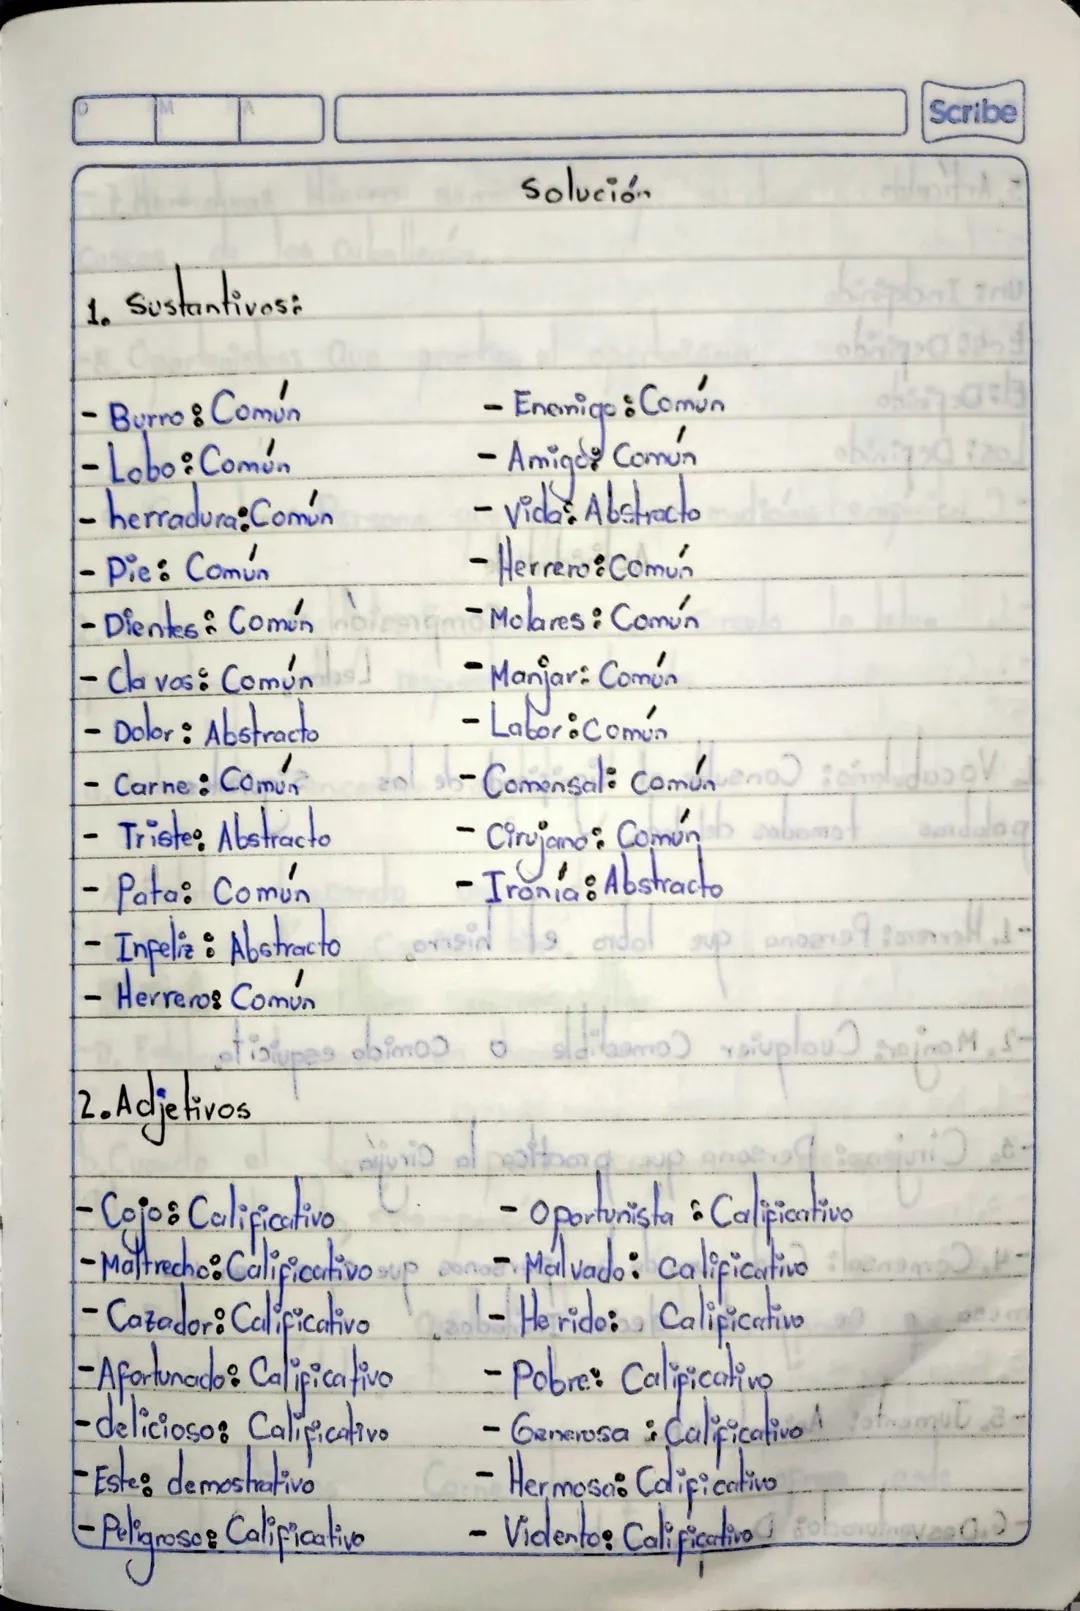 D M A
Scribe
Solución
1. Sustantivos:
- Burro: Común
- Lobo: Común
- herradura: Común
- Pie: Común
- Dientes: Común
- Clavos: Común
- Dolor: Abstracto
- Carne: Común
- Triste: Abstracto
- Pata: Común
- Infeliz: Abstracto
- Herrero: Común
- Enemigo: Común
- Amigo: Común
- Vida: Abstracto
- Herrero: Común
- Molares: Común
- Manjar: Común
- Labor: Común
- Comensal: Común
- Cirujano: Común
- Ironía: Abstracto
2. Adjetivos
- Cojo: Calificativo
- Maltrecho: Calificativo
- Cazador: Calificativo
- Afortunado: Calificativo
- delicioso: Calificativo
- Este: demostrativo
- Peligroso: Calificativo
- Oportunista: Calificativo
- Malvado: Calificativo
- Herido: Calificativo
- Pobre: Calificativo
- Generosa: Calificativo
- Hermosa: Calificativo
- Violento: Calificativo